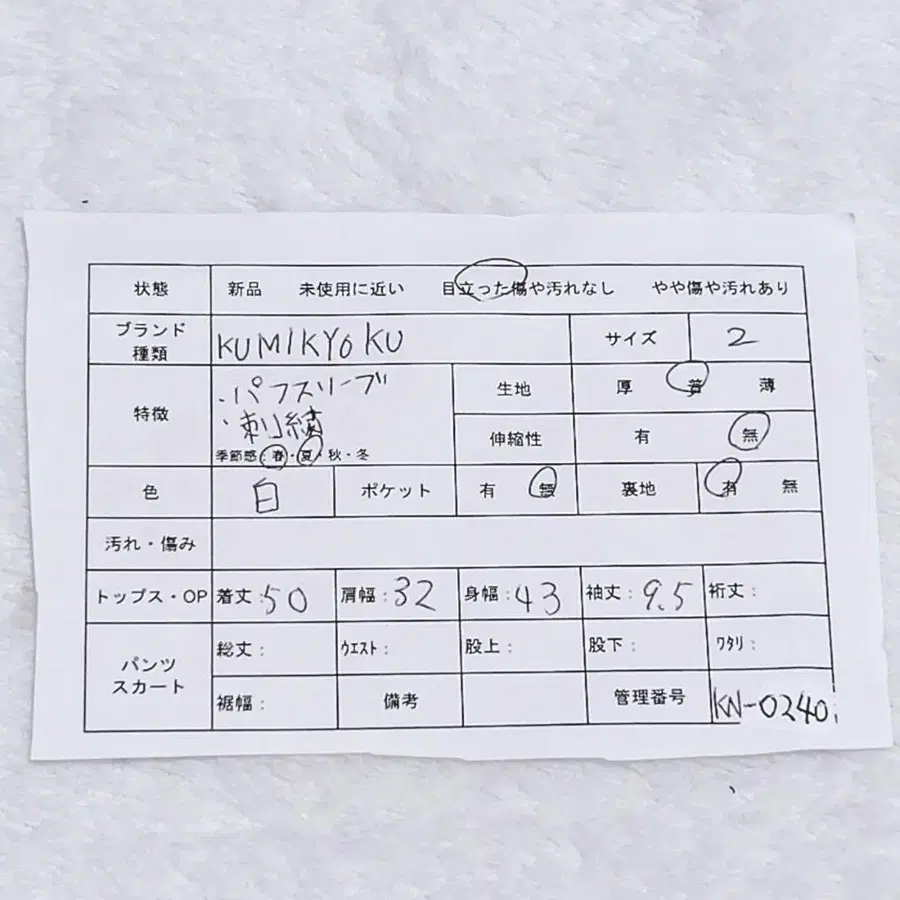 状態 新品 未使用に近い 目立った傷や汚れなし やや傷や汚れあり
ブランド 種類 KUMIKYOKU サイズ 2
特徴 ・パフスリーブ 生地 厚 普 薄
・刺繍 伸縮性 有 無
季節感:春・夏・秋・冬
色 白 ポケット 有 無 裏地 有 無
汚れ・傷み
トップス・OP 着丈:50 肩幅:32 身幅:43 袖丈:9.5 裄丈:
パンツ スカート 総丈: ウエスト: 股上: 股下: ワタリ:
裾幅: 備考 管理番号 KN-0240